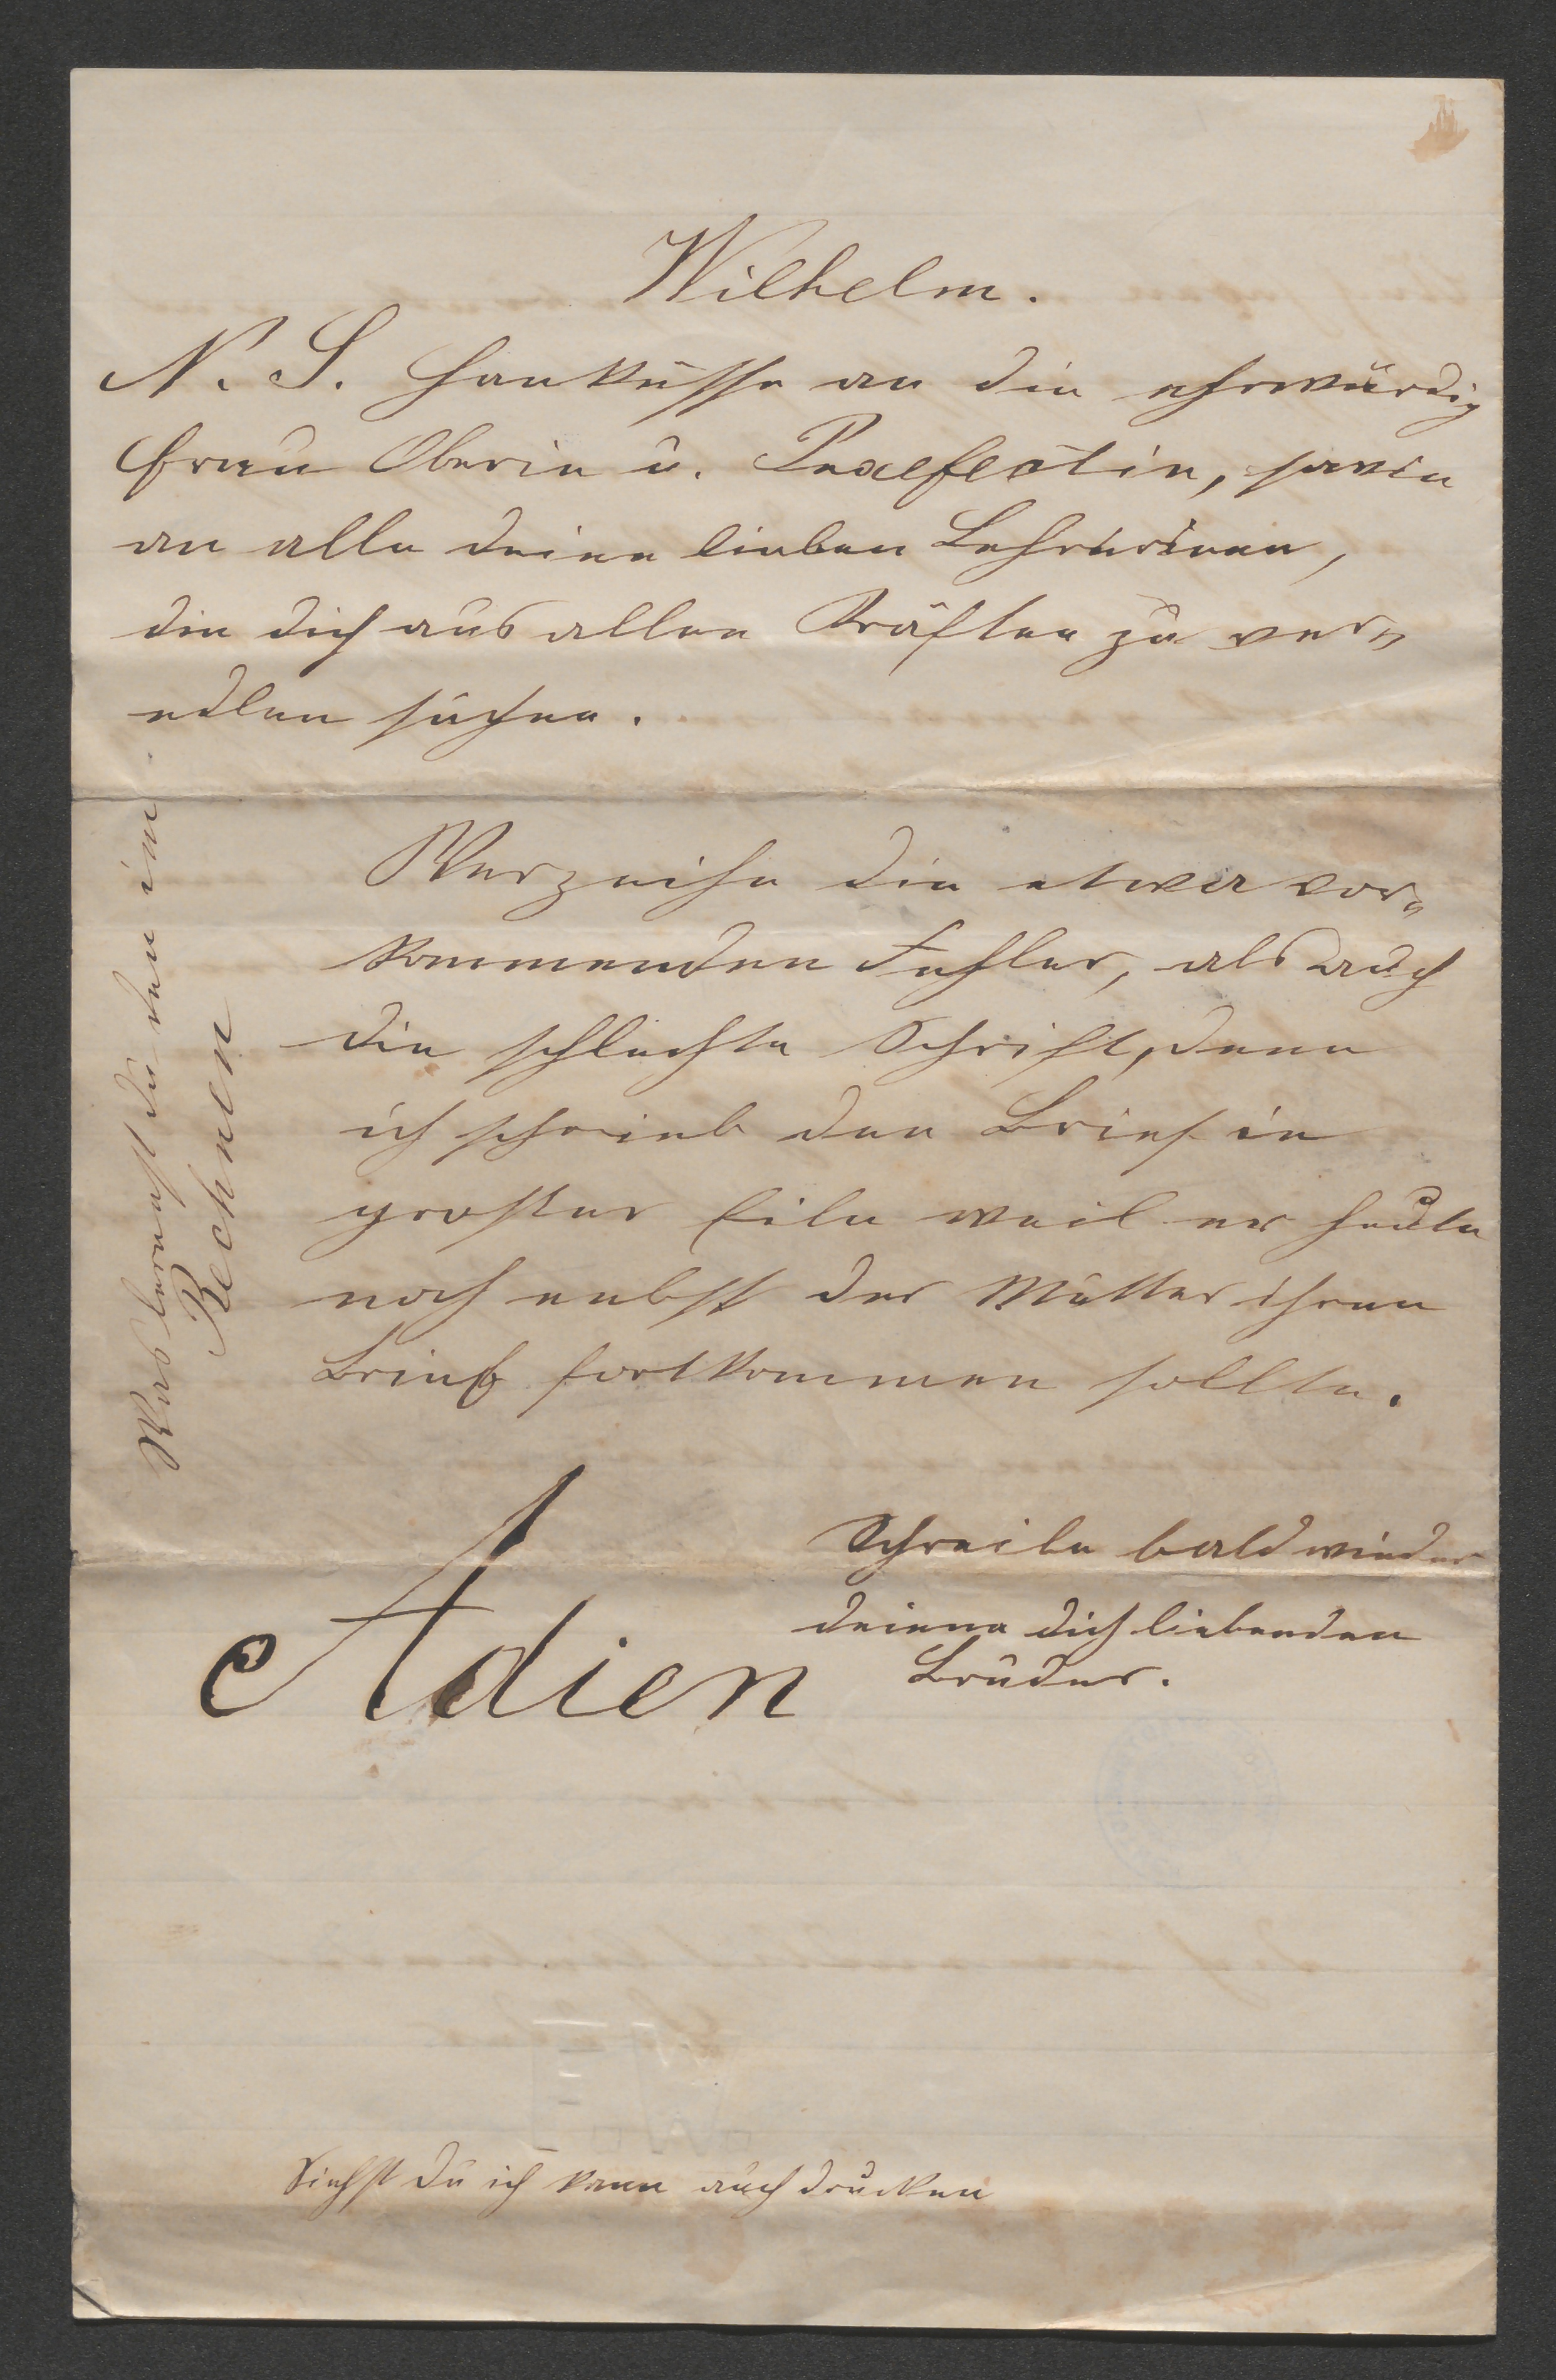 Wilhelm.
N. S. Handküsse an die ehrwürdig
Frau Oberin u. Praefectin, sowie
an alle deine lieben Lehrerinen,
die dich aus allen Kräften zu ver„
edlen suchen.
Verzeihe die etwa vor„
kommenden Fehler, als auch
die schlechte Schrift, denn
ich schrieb den Brief in
großter Eile weil er heute
noch nebst der Mutter ihren
Brief fortkommen sollte.
Adien
Schreibe bald wieder
deinen dich liebenden
Bruder.
Was lernest du den im
Rechnen
Siehst du ich kann auch drucken